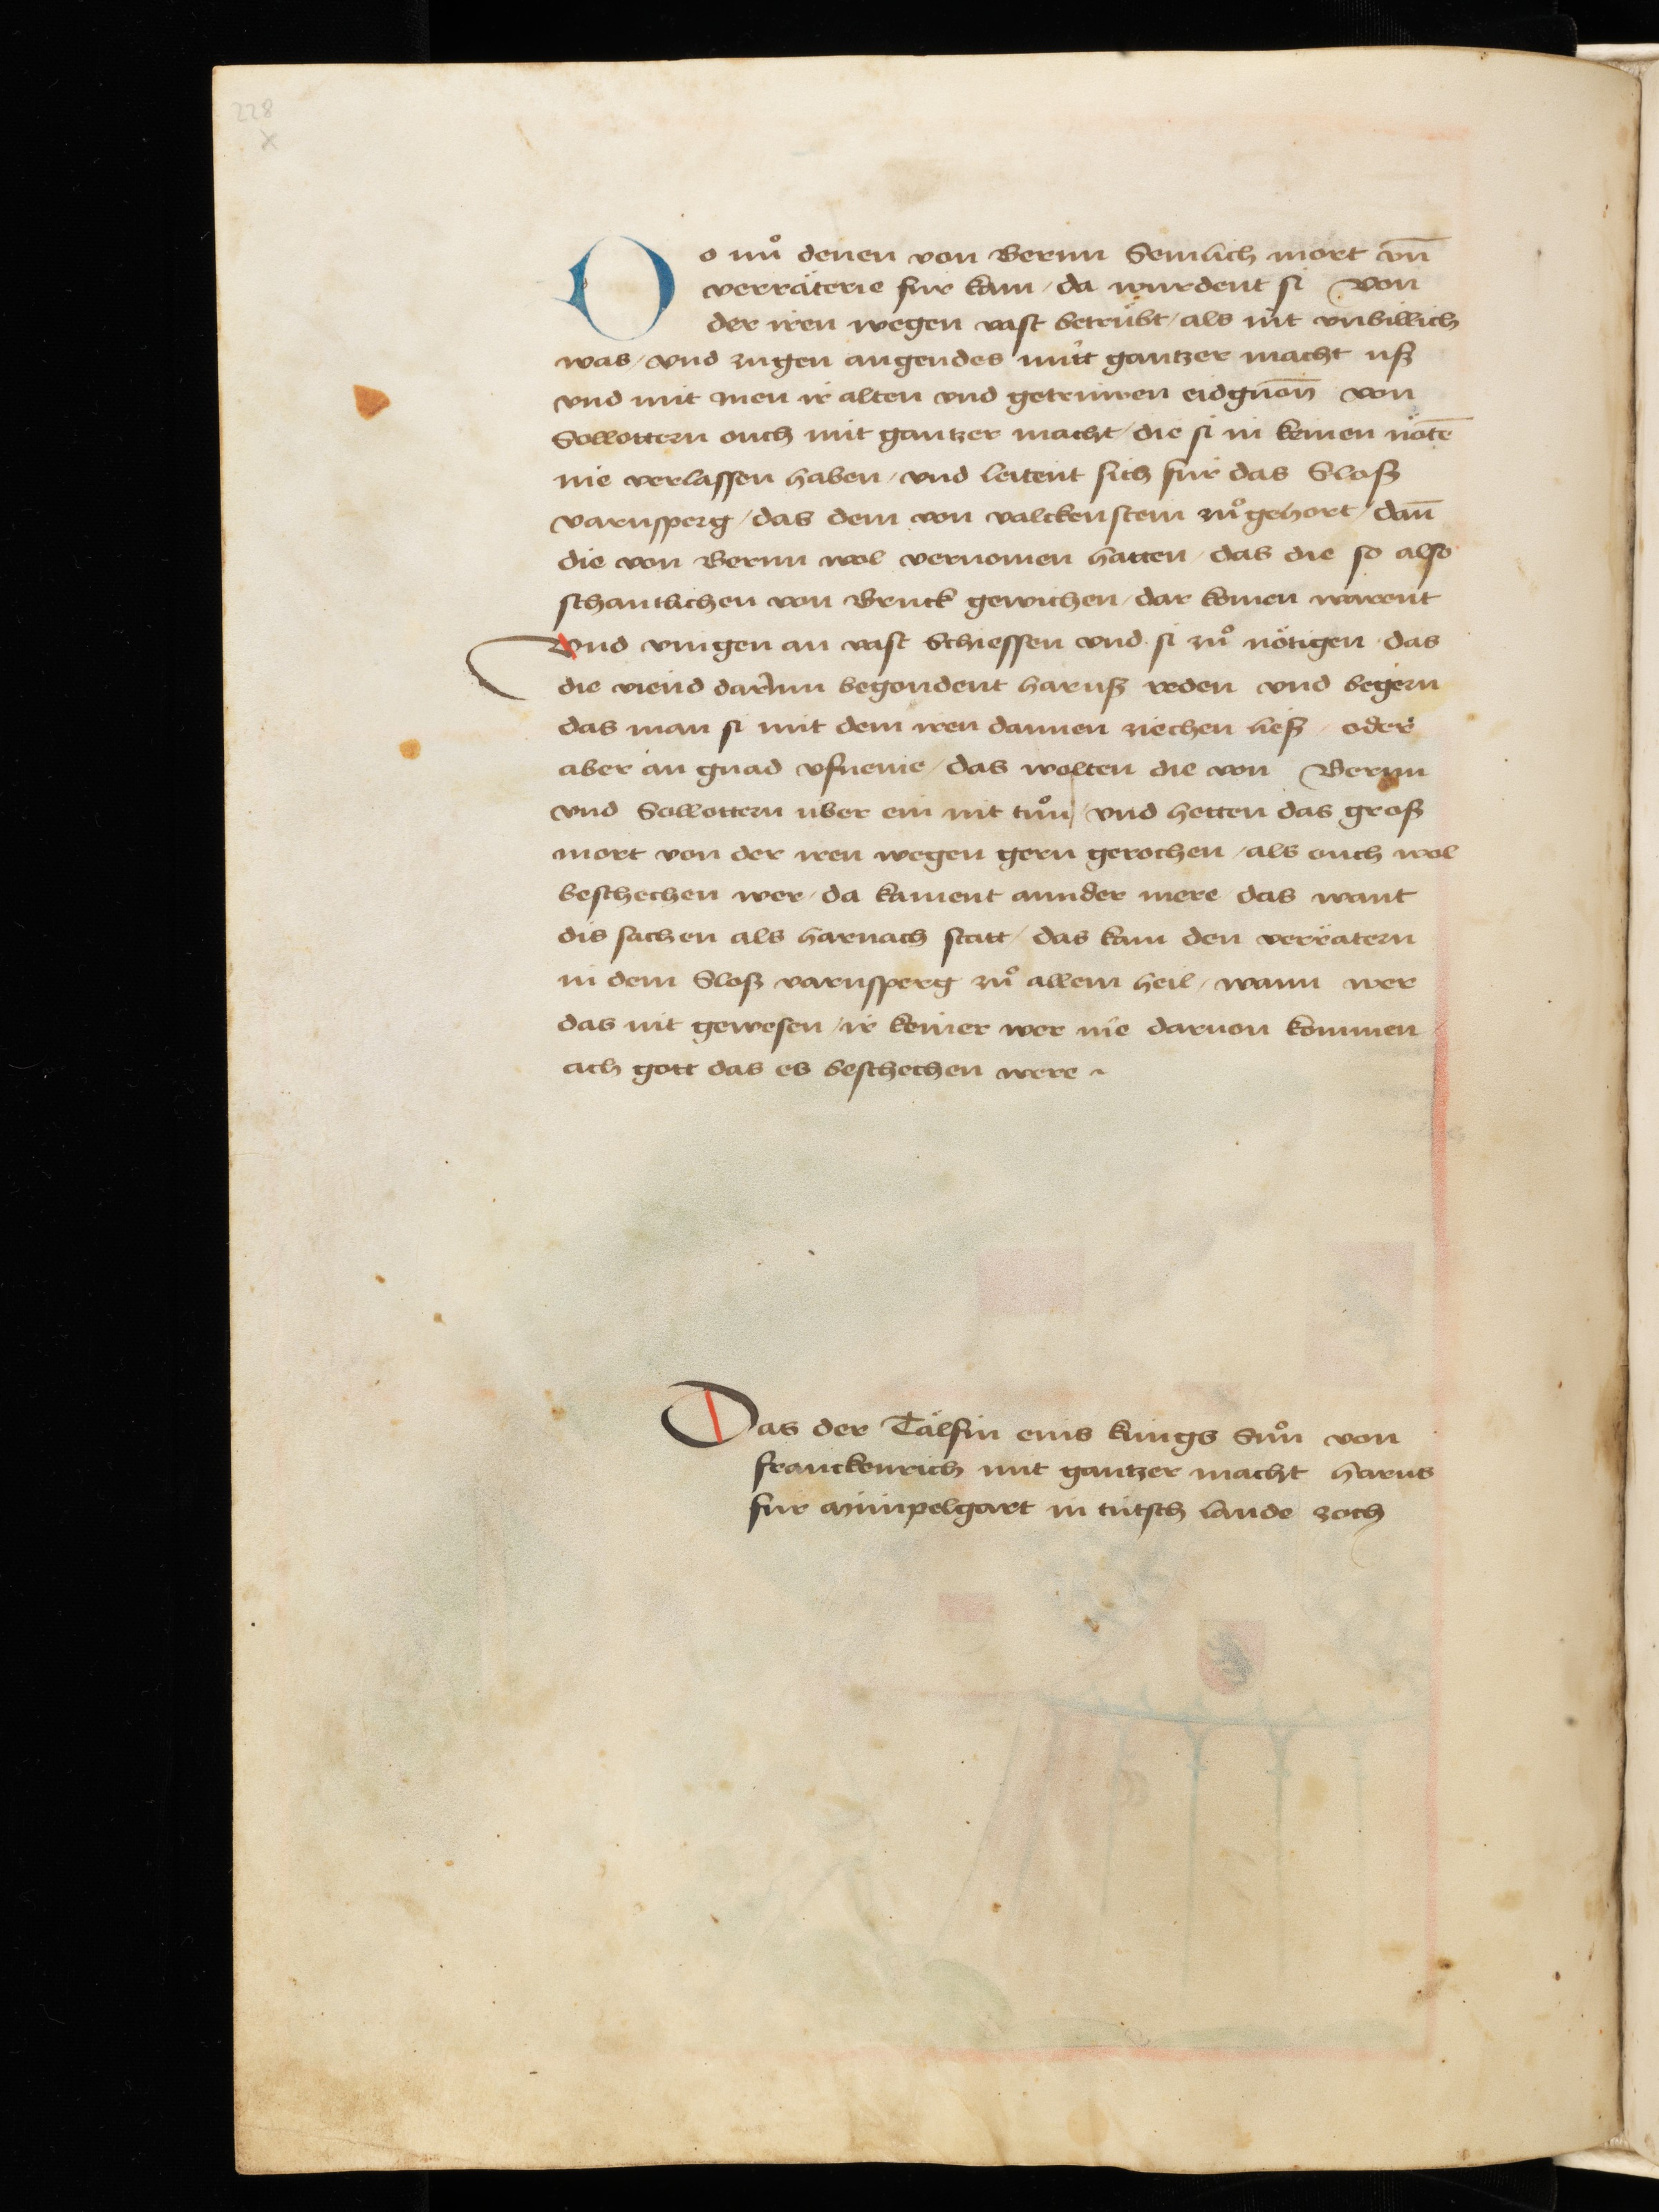 228
x
Do nuͦ denen von Bernn Semlich mort vn̄
verräterie fúr kam / da wurdent si von
der iren wegen vast betrübt / als nit vnbillich
was / vnd zugen angendes mitt gantzer macht uß
vnd mit inen ir alten vnd getruwen eidgnon̄ von
Sollottern ouch mit gantzer macht / die si in keinen nöte̅
nie verlassen haben / vnd leitent sich für das Sloß
varnsperg / das dem von valckenstein zuͦ gehort / dan̄
die von Bernn wol vernomen hatten / das die so also
schantlichen von Bruck gewichen / dar komen warent
Vnd viengen an vast Schiessen vnd si zuͦ nötigen das
die viend darinn begondent haruß reden vnd begern
das man si mit dem iren dannen ziechen ließ / oder
aber an gnad vfneme / das wolten die von Bernn
vnd Sollottern uber ein nit tuͦn / vnd hetten das groß
mort von der iren wegen gern gerochen / als ouch wol
beschechen wer / da kament annder mere das want
dis sachen als harnach statt / das kam den verrätern
in dem Sloß varnsperg zuͦ allem heil / wann wer
das nit gewesen / ir keiner wer nie daruon kommen
ach gott das es beschechen were ~
Das der Tälfin eins kúngs Suͦn von
franckenrich mit gantzer macht harus
fúr Múmpelgart in tútsch lande zoch